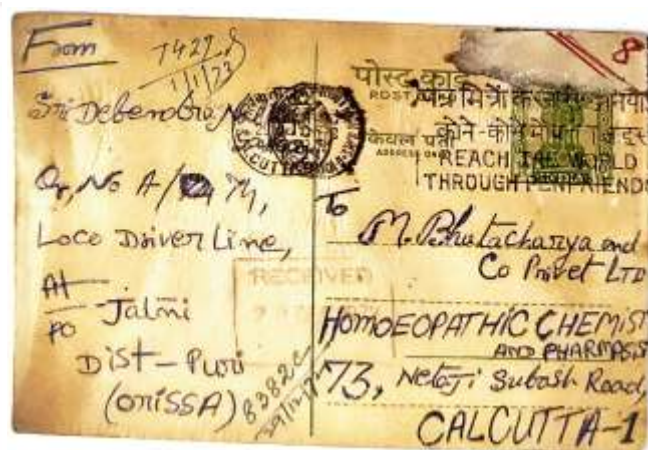 From
1/1/73
Sri Debendra N
Qr, No A/
Loco Driver Line,
At
PO Jatni
Dist - Puri
(ORISSA)
8382c
CALCUTTA
पोस्ट कार्ड
POST
केवल पता
ADDRESS ONLY
REACH THE WORLD
THROUGH PENFRIENDS
8
RECEIVED
To
M. Bhutacharya and
Co Privet LTD
HOMOEOPATHIC CHEMIST
AND PHARMASIST
73, Netaji Subash Road,
CALCUTTA-1